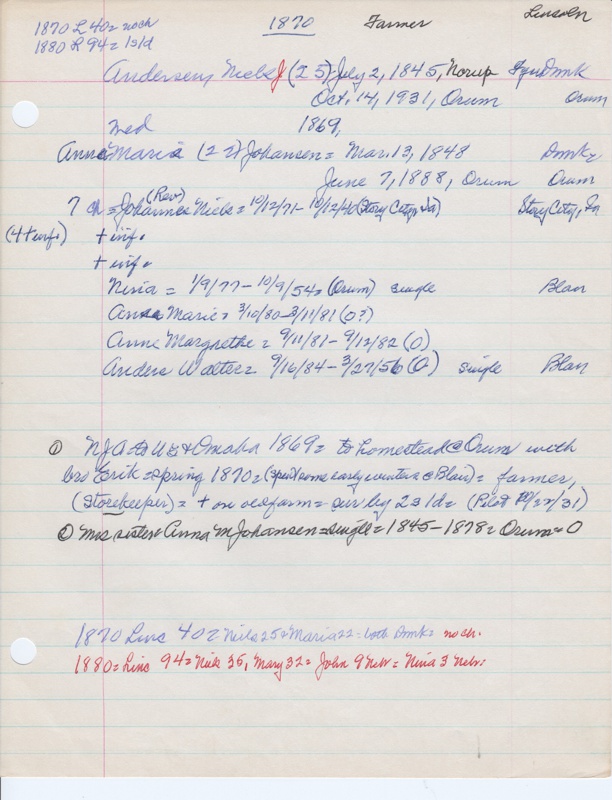 1870 L 40 = no ch
1880 R 94 = 1s1d
1870 Farmer Lincoln
Andersen, Niels J (25) July 2, 1845, Norup Dmk
Oct. 14, 1931, Orum Orum
med 1869,
Anna Maria (22) Johansen = Mar. 13, 1848 Dmk =
June 7, 1888, Orum Orum
7 ch = Johannes (Rev) Niels = 10/12/71 - 10/12/40 (Story City, Ia) Story City, Ia
(4 + inf.) + inf.
+ inf.
Nina = 1/9/77 - 10/9/54 = (Orum) single Blair
Anna Marie = 3/10/80 - 3/11/81 (O?)
Anne Margrethe = 9/11/81 - 9/12/82 (O)
Anders Walter = 9/16/84 - 3/27/56 (O) single Blair
① NJA to US & Omaha 1869 = to homestead @ Orum with
bro Erik = spring 1870 = (spent some early winters @ Blair) = farmer,
(Storekeeper) = + on farm = sur by 2s 1d = (Pilot 10/22/31)
① Mrs sister Anna M Johansen = single = 1845 - 1878 = Orum = O
1870 Linc 40 = Niels 25 = Maria 22 = both Dmk = no ch.
1880 = Linc 94 = Niels 35, Mary 32 = John 9 Nebr = Nina 3 Nebr =